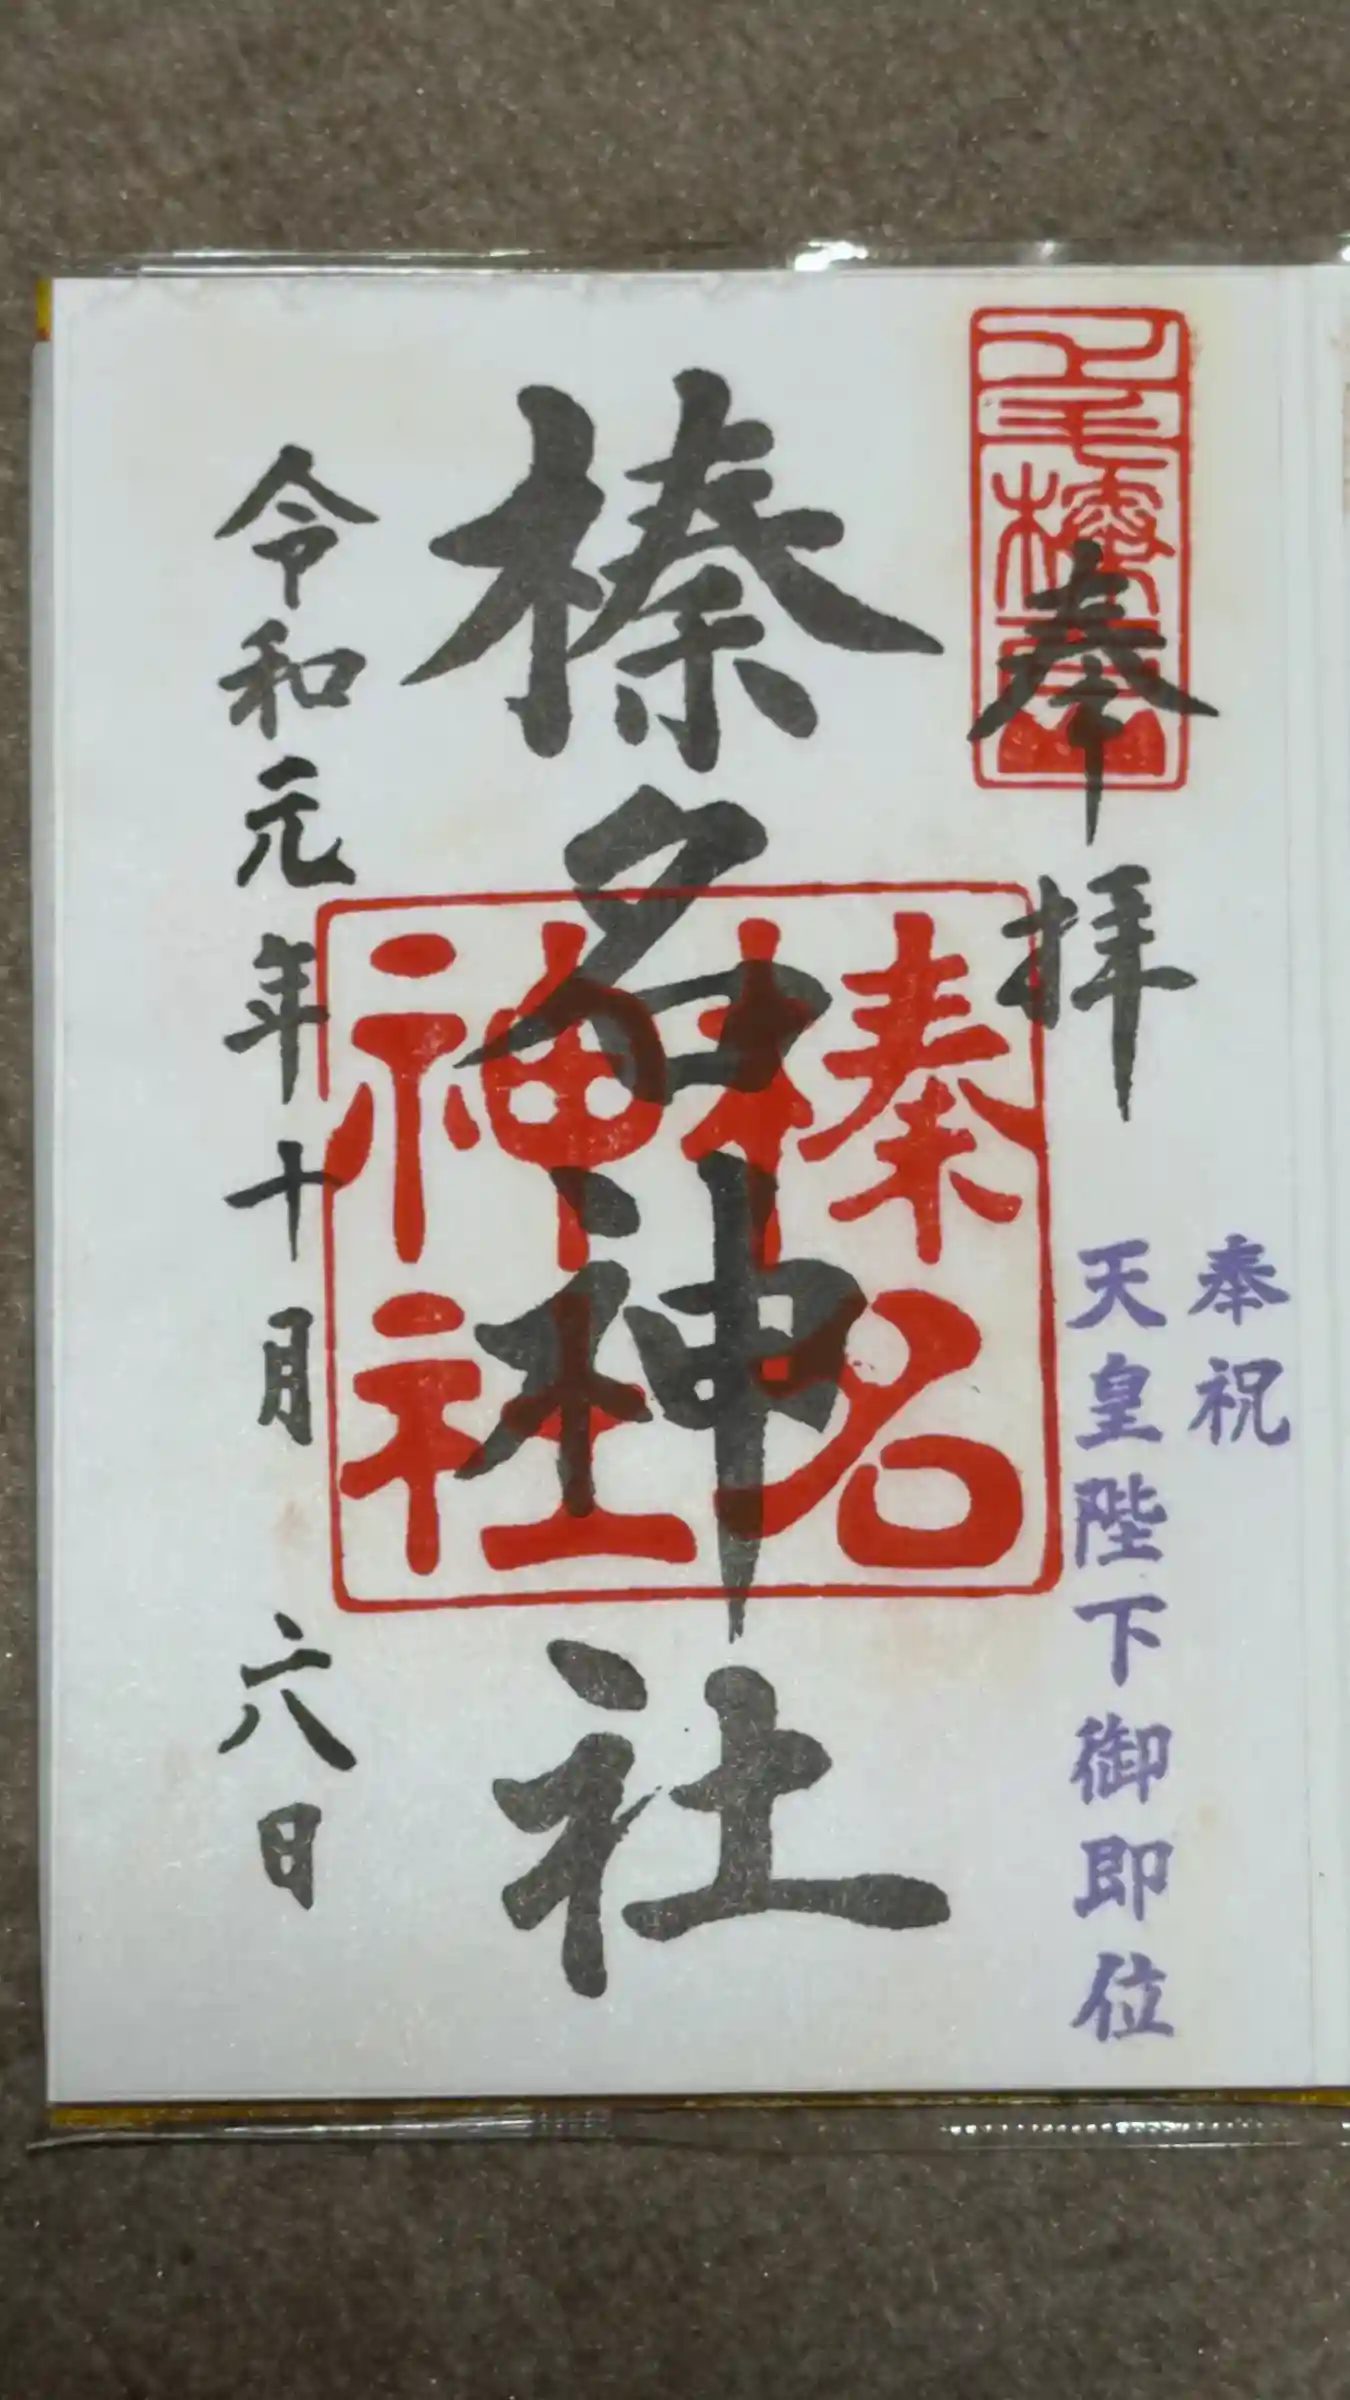 奉祝
天皇陛下御即位
奉拝
上毛榛名山
榛名神社
榛名
神社
令和元年十月六日